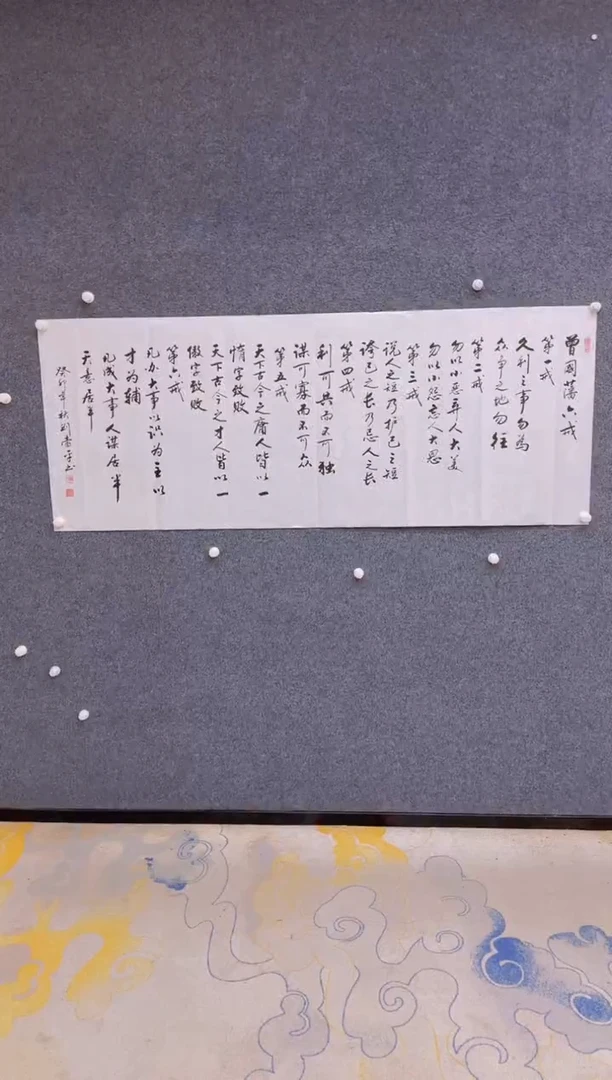 曾国藩六戒
第一戒
久利之事勿为
众争之地勿往
第二戒
勿以小恶弃人大美
勿以小怨忘人大恩
第三戒
说人之短乃护己之短
夸己之长乃忌人之长
第四戒
利可共而不可独
谋可寡而不可众
第五戒
天下古今之庸人皆以一
惰字致败
天下古今之才人皆以一
傲字致败
第六戒
凡办大事以识为主以
才为辅
凡成大事人谋居半
天意居半
癸卯年秋刘